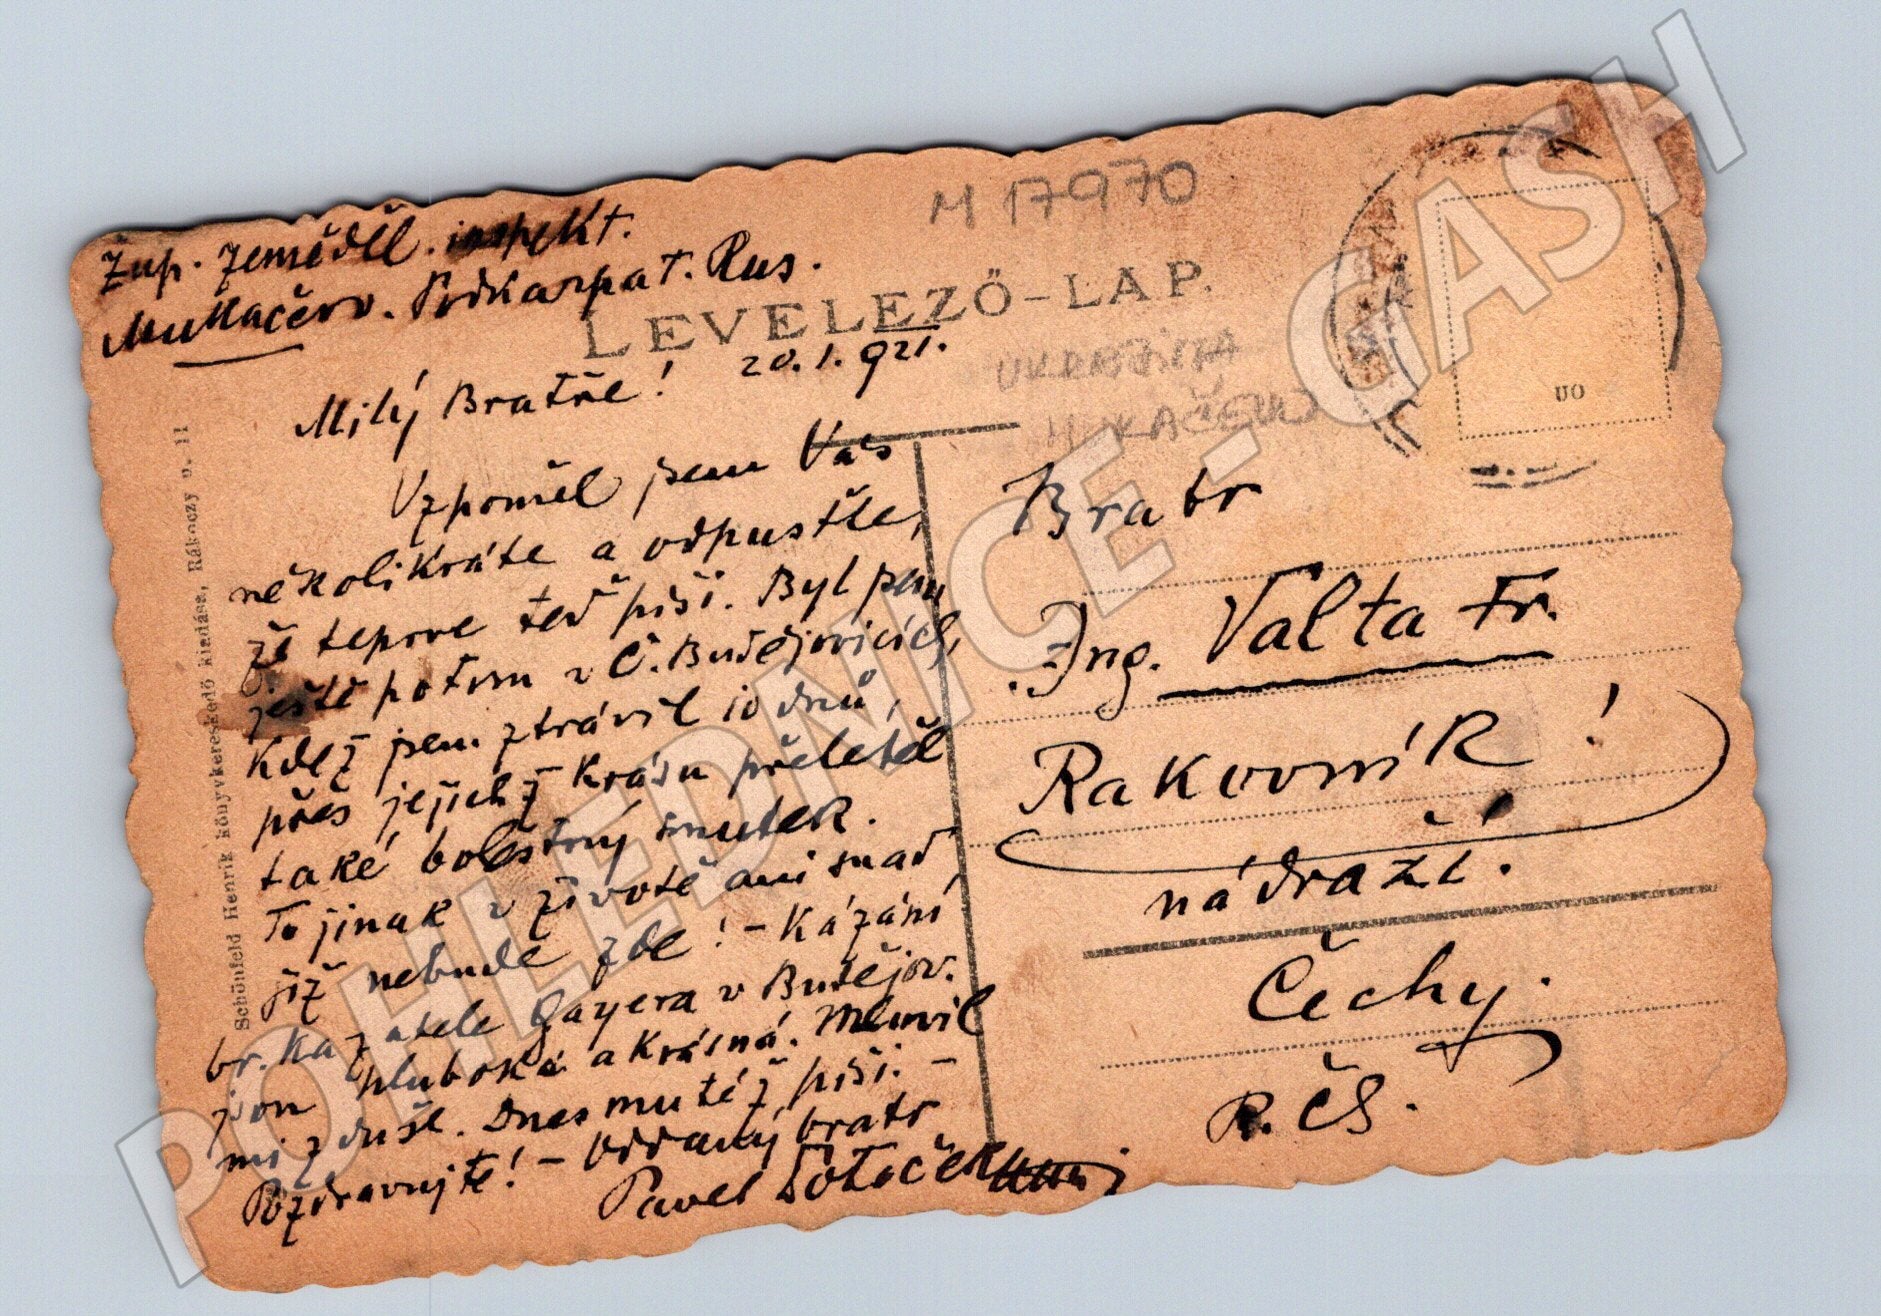 Žup. zeměděl. inspekt.
Mukačevo. Podkarpat. Rus.
M 17970
LEVELEZŐ-LAP.
20.1.921.
UKRAJINA
MUKAČEVO
UO
Milý Bratře!
Vzpoměl jsem Vás
několikráte a odpusťte,
že teprve teď píši. Byl jsem
ještě potom v Č. Budějovicích,
kdež jsem ztrávil 10 dnů,
přes jejichž krásu přeletěl
také bolestný smutek.
To jinak v životě ani snad
již nebude zde! - Kázání
br. kazatele Gayera v Budějov.
jsou hluboká a krásná. Mluvil
mi z duše. Dnes mu též píši. -
Pozdravujte! - Oddaný bratr
Pavel
Bratr
Ing. Valta Fr.
Rakovník!
nádraží.
Čechy.
R.ČS.
Schönfeld Henrik könyvkereskedő kiadása, Rákóczy u. 11
POHLEDNICE - GASH